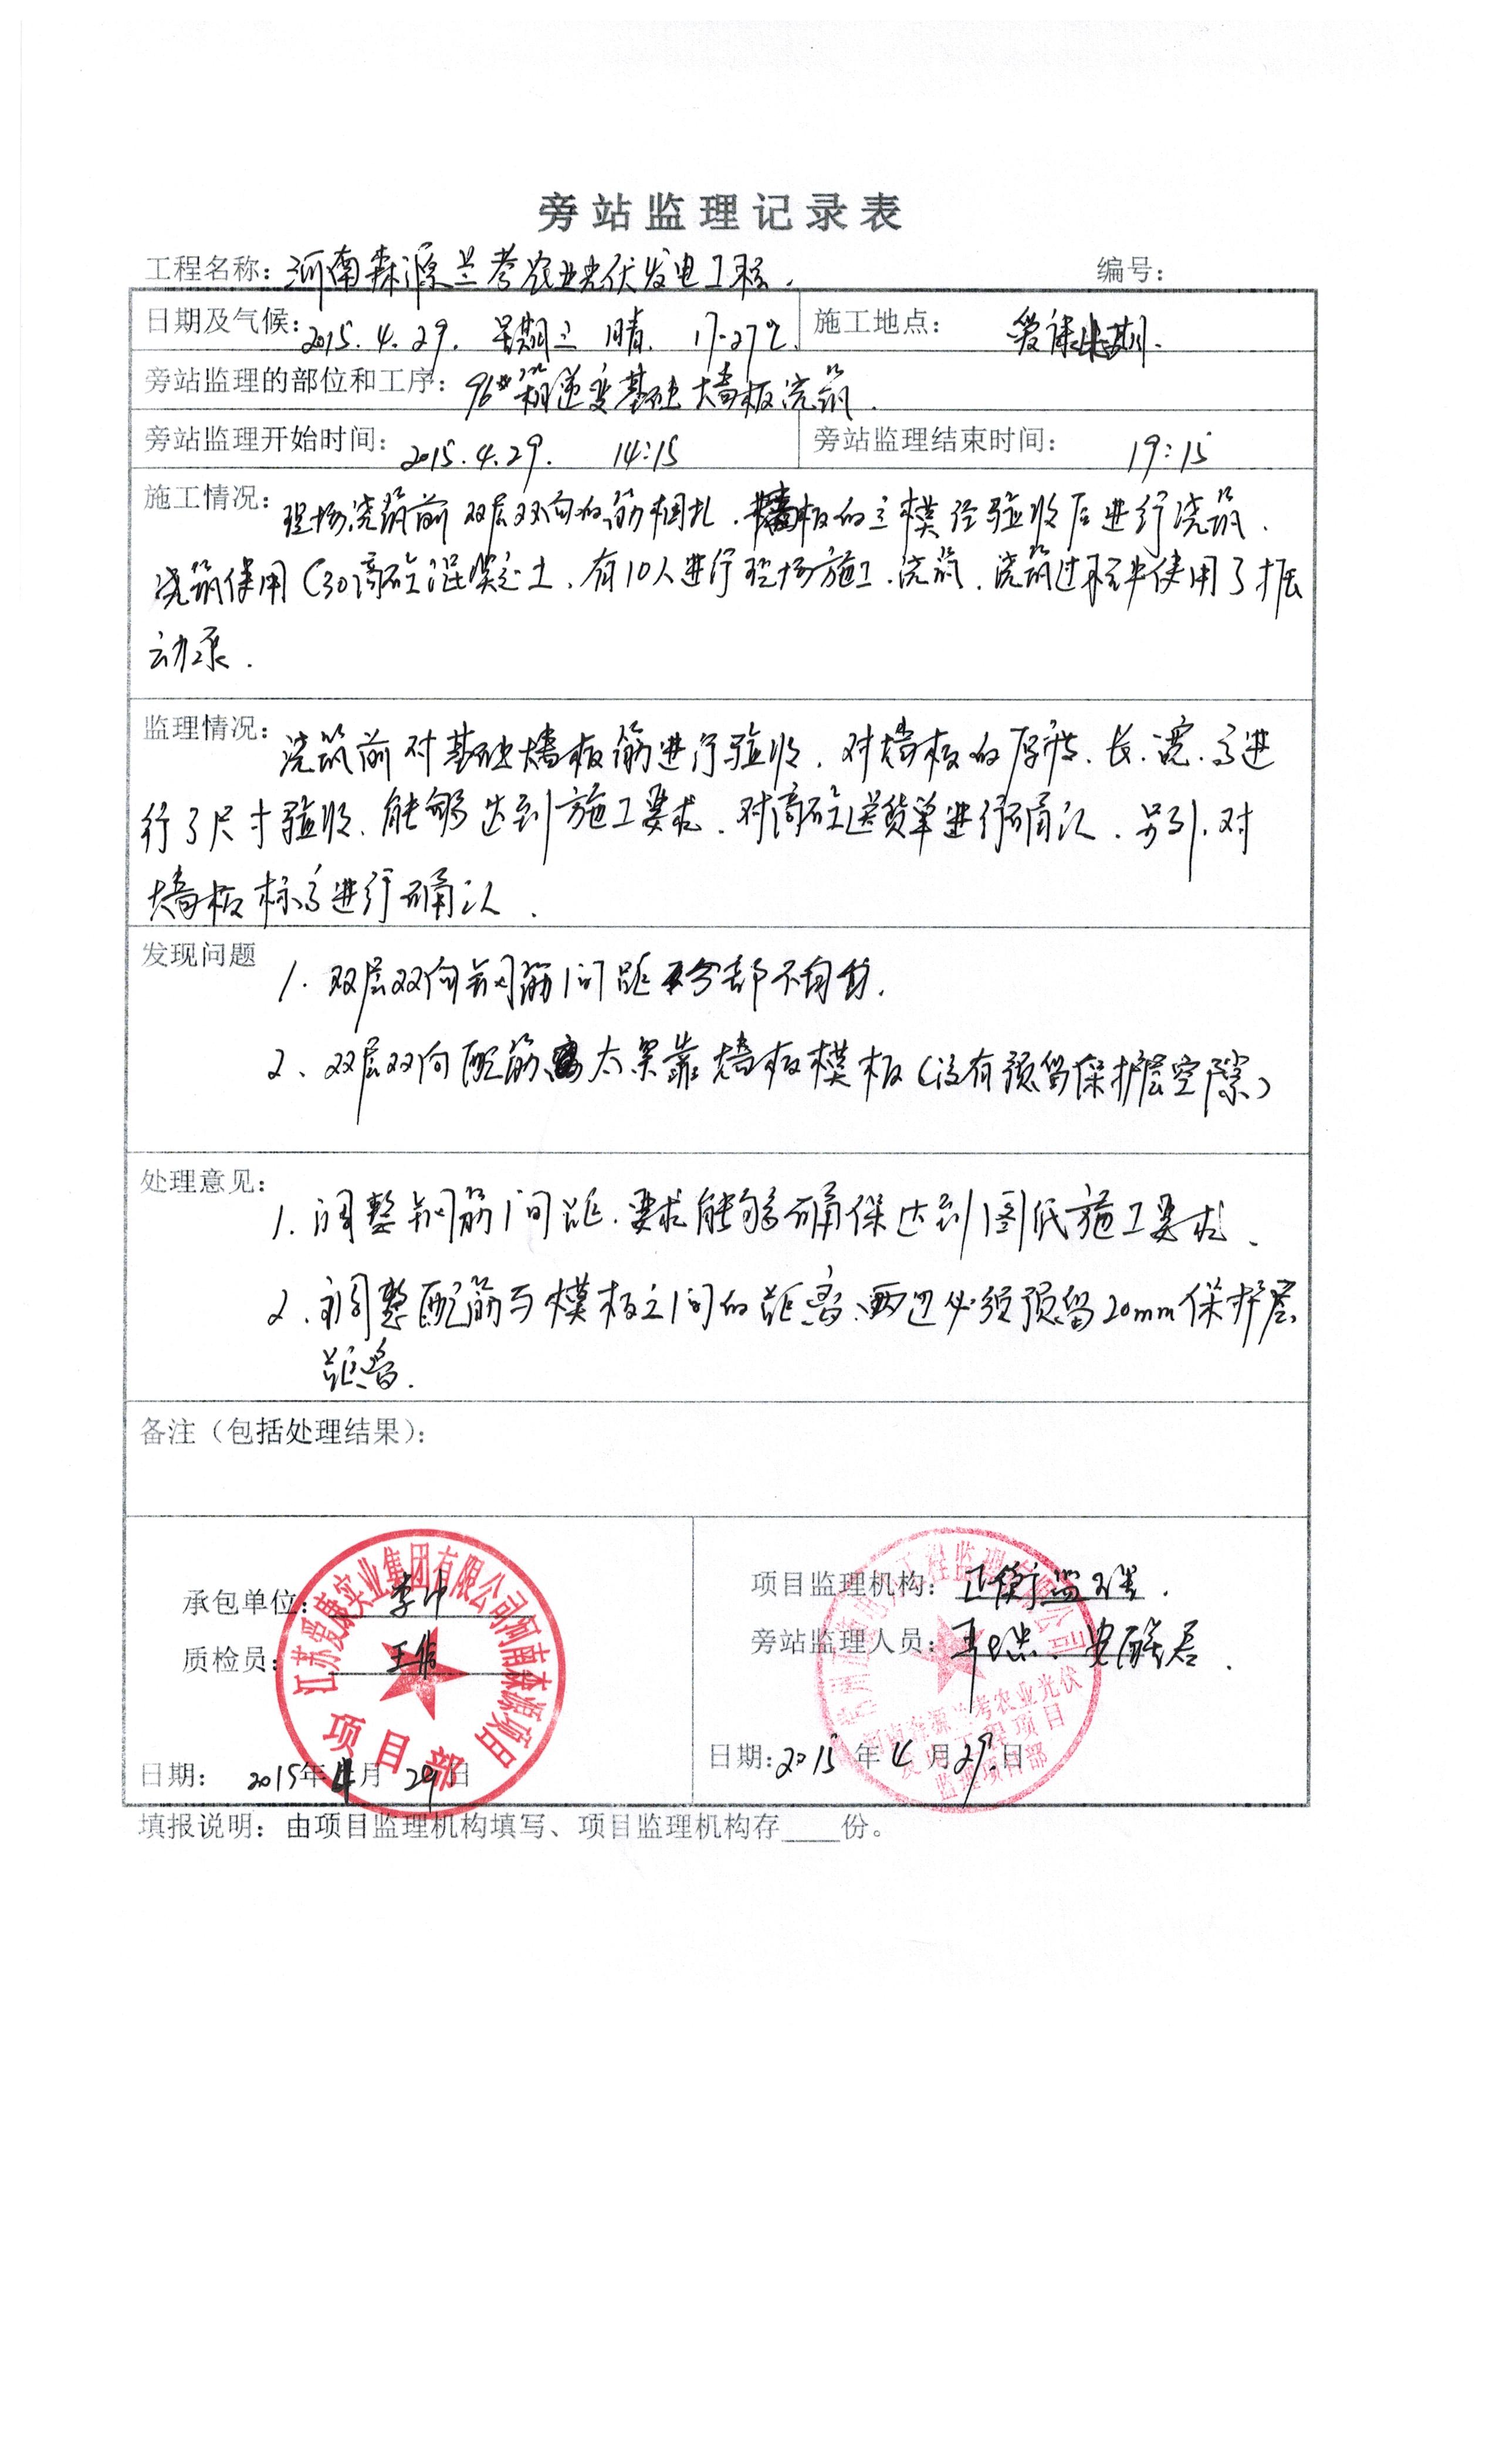 旁站监理记录表
工程名称：河南森源兰考农业光伏发电工程. 编号：
日期及气候：2015.4.29. 星期三 晴. 17-27℃. 施工地点：爱康北期.
旁站监理的部位和工序：96#箱逆变基础墙板浇筑.
旁站监理开始时间：2015.4.29. 14:15 旁站监理结束时间：19:15
施工情况：现场浇筑前双层双向的筋捆扎.墙板的立模经验收后进行浇筑.
浇筑使用C30商砼混凝土.有10人进行现场施工.浇筑.浇筑过程中使用了振
动泵.
监理情况：浇筑前对基础墙板筋进行验收.对墙板的厚度.长.宽.高进
行了尺寸验收.能够达到施工要求.对商砼送货单进行确认.另外.对
墙板标高进行确认.
发现问题 1.双层双向钢筋间距分部不均匀.
2、双层双向配筋太紧靠墙板模板(没有预留保护层空隙)
处理意见：1.调整钢筋间距.要求能够确保达到图纸施工要求.
2.调整配筋与模板之间的距离、两边必须预留20mm保护层
距离.
备注（包括处理结果）：
承包单位：李中
质检员：王
日期：2015年4月29日
江苏爱康实业集团有限公司河南森源项目
项目部
项目监理机构：正衡监理.
旁站监理人员：
日期：2015年4月29日
工程监理有限公司
河南森源兰考农业光伏
发电工程项目
监理项目部
填报说明：由项目监理机构填写、项目监理机构存____份。